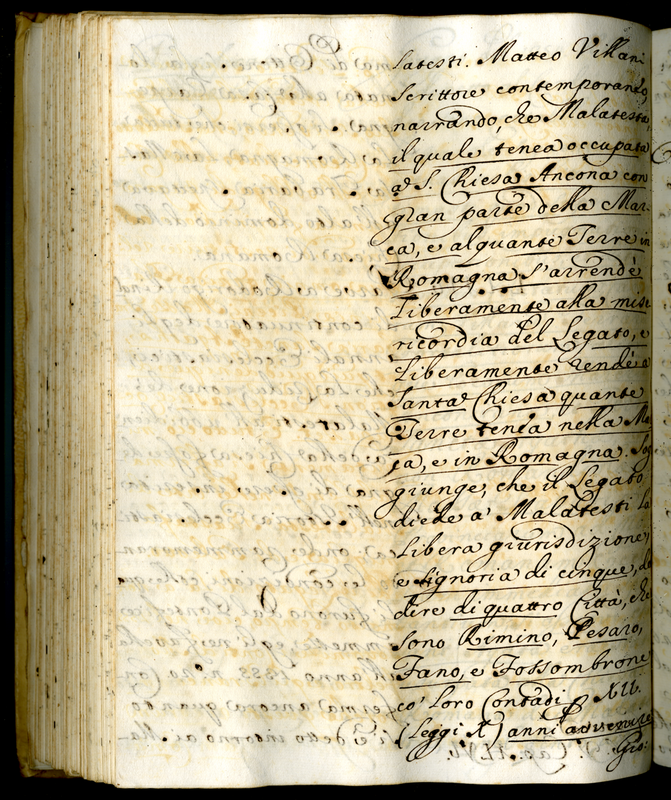 latesti. Matteo Villani
Scrittore contemporaneo,
narrando, che Malatesta,
il quale tenea occupata
a S. Chiesa Ancona con
gran parte della Mar-
ca, e alquante Terre in
Romagna s'arrendè
liberamente alla mise
ricordia del Legato, e
liberamente rendè a
Santa Chiesa quante
Terre tenea nella Ma
ca, e in Romagna. Sog
giunge, che il Legato
diede a' Malatesti la
libera giurisdizione,
e signoria di cinque,
dire di quattro Città, che
sono Rimino, Pesaro,
Fano, e Fossombrone
co' loro Contadi
(leggi X) anni advenire
Gio: